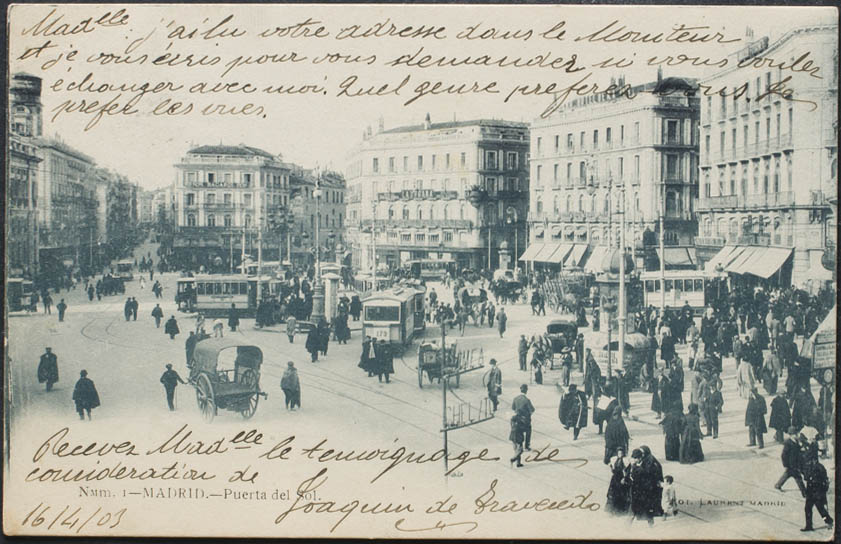 Mad^elle j'ai lu votre adresse dans le Moniteur
et je vous écris pour vous demander si vous voulez
échanger avec moi. Quel genre preferez vous. Je
prefer les vues.
179
Recevez Mad^elle le temoignage de
consideration de
NÚM. 1—MADRID.—Puerta del Sol.
Joaquin de
16/4/03
FOT. LAURENT MADRID